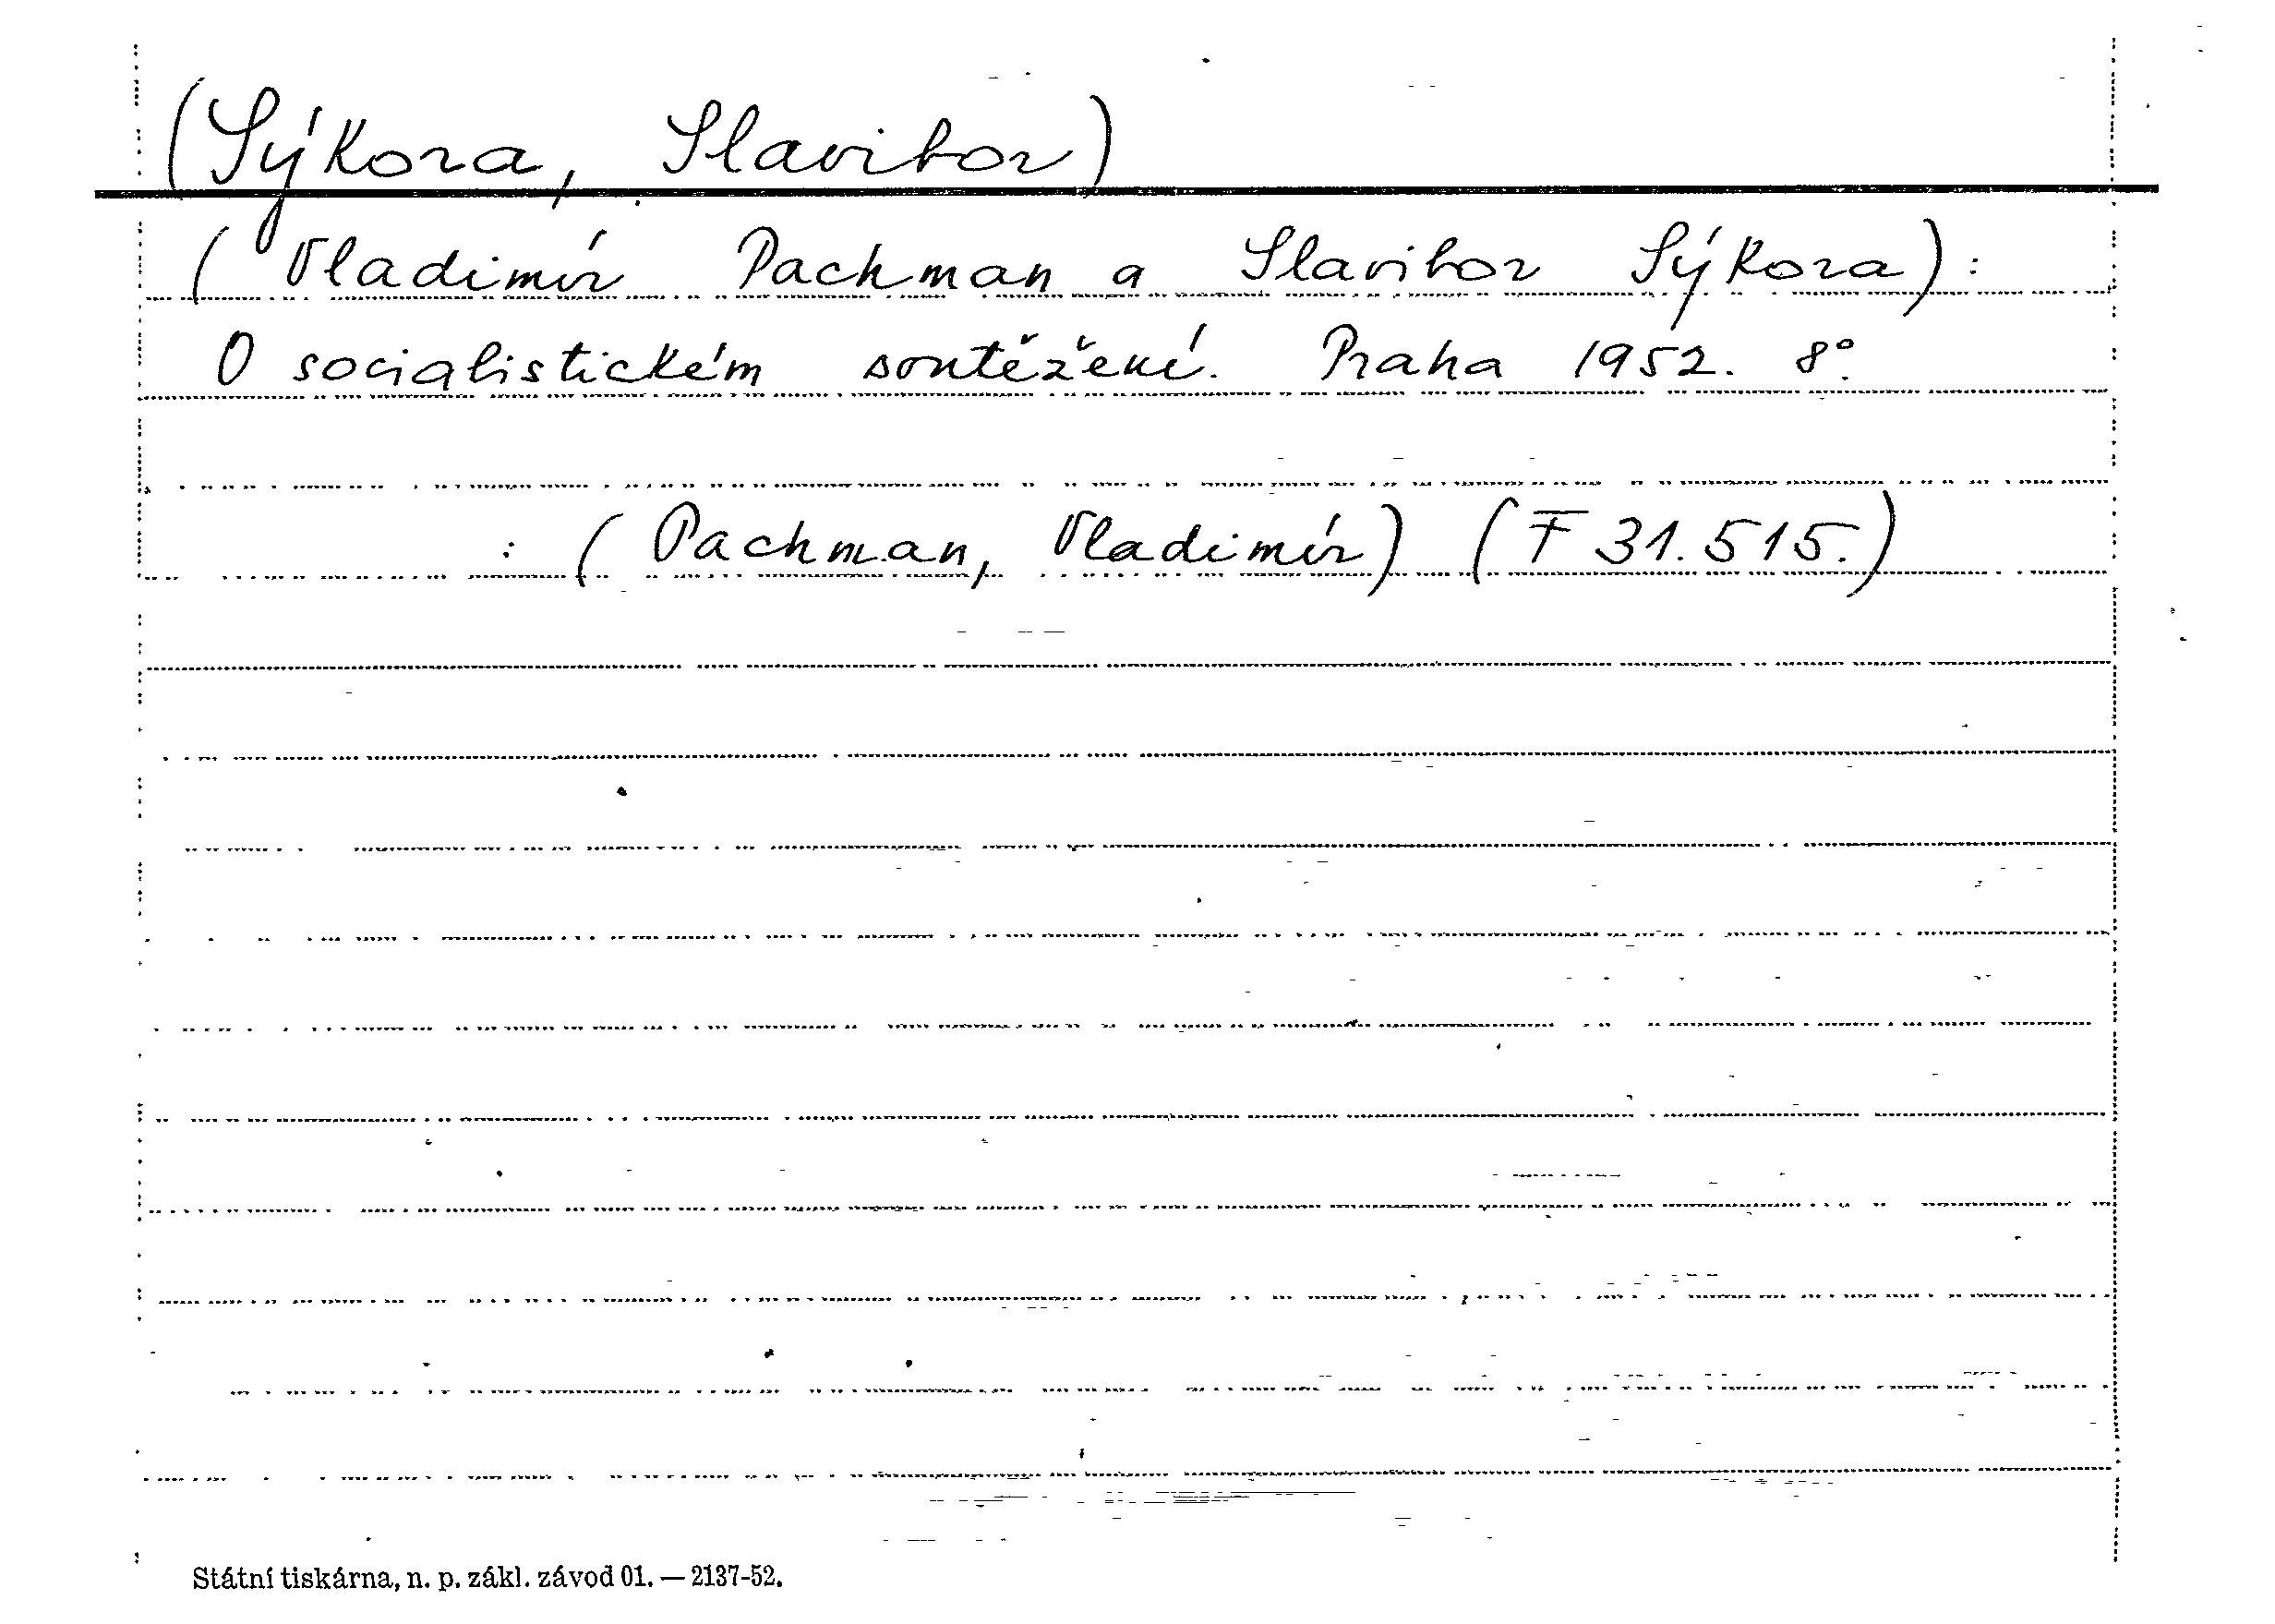 (Sýkora, Slavibor)
(Vladimír Pachman a Slavibor Sýkora):
O socialistickém soutěžení. Praha 1952. 8°.
: (Pachman, Vladimír) (F 31.515.)
Státní tiskárna, n. p. zákl. závod 01. — 2137-52.